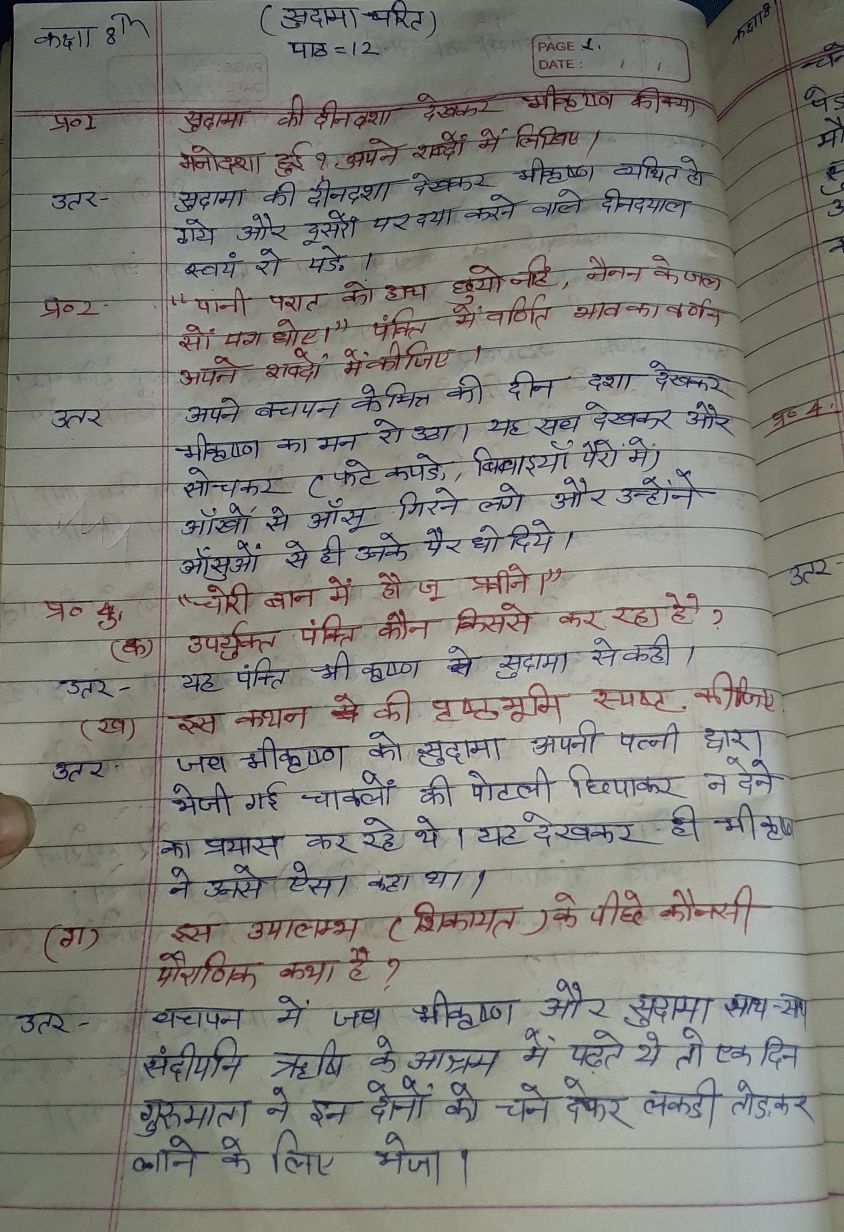 कक्षा 8th
(सुदामा चरित)
पाठ = 12
PAGE 1.
DATE: / /
प्र०1 सुदामा की दीनदशा देखकर श्रीकृष्ण की क्या
मनोदशा हुई? अपने शब्दों में लिखिए।
उतर- सुदामा की दीनदशा देखकर श्रीकृष्ण व्यथित हो
गये और दूसरों पर दया करने वाले दीनदयाल
स्वयं रो पडे़।
प्र०2 "पानी परात को हाथ छुयो नहिं, नैनन के जल
सों पग धोए।" पंक्ति में वर्णित भाव का वर्णन
अपने शब्दों में कीजिए।
उतर अपने बचपन के मित्र की दीन दशा देखकर
श्रीकृष्ण का मन रो उठा। यह सब देखकर और
सोचकर (फटे कपडे़, बिवाइयाँ पैरों में)
आँखों से आँसू गिरने लगे और उन्होंने
आँसुओं से ही उनके पैर धो दिये।
प्र० 4, "चोरी बान में हौ जू प्रवीने।"
(क) उपर्युक्त पंक्ति कौन किससे कर रहा है?
उतर- यह पंक्ति श्री कृष्ण ने सुदामा से कही।
(ख) इस कथन की पृष्ठभूमि स्पष्ट कीजिए
उतर जब श्रीकृष्ण को सुदामा अपनी पत्नी द्वारा
भेजी गई चावलों की पोटली छिपाकर न देने
का प्रयास कर रहे थे। यह देखकर ही श्री कृष्ण
ने उनसे ऐसा कहा था।
(ग) इस उपालम्भ (शिकायत) के पीछे कौनसी
पौराणिक कथा है?
उतर- बचपन में जब श्रीकृष्ण और सुदामा साथ-साथ
संदीपनि ऋषि के आश्रम में पढ़ते थे तो एक दिन
गुरुमाता ने इन दोनों को चने देकर लकडी तोड़कर
लाने के लिए भेजा।
कक्षा 8
प्र० 4.
उतर-